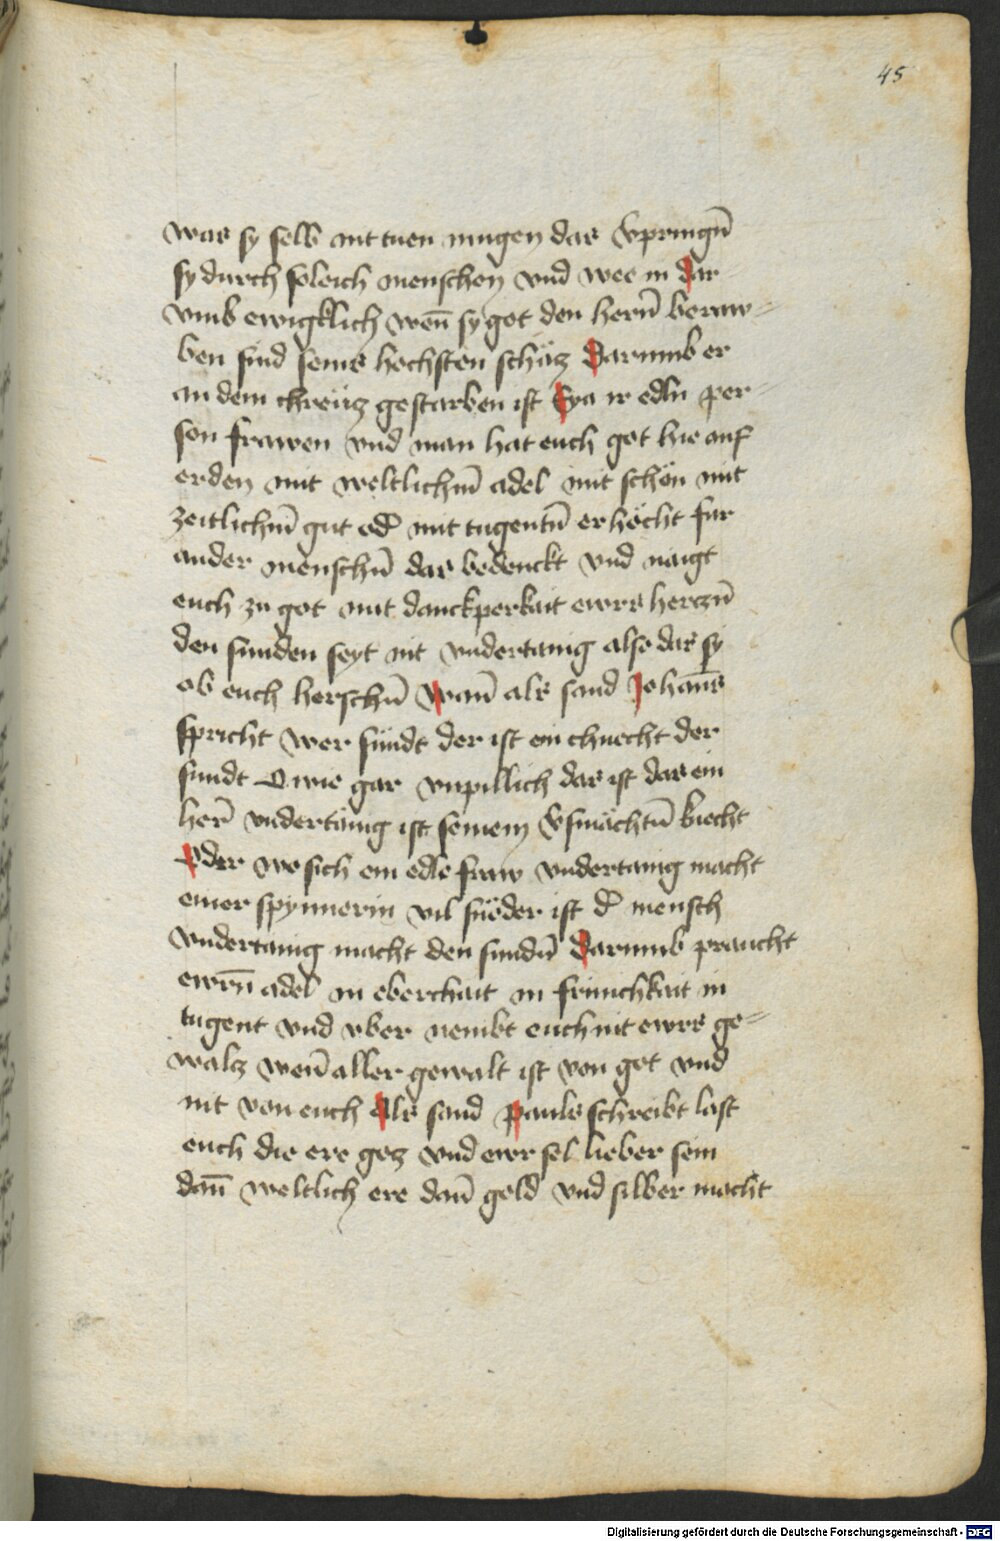 45
was sy selb nit tuen mugen das v̄pringn̄
sy durch soleich menschen vnd wee in dar
vmb ewigklich wen̄ sy got den hern̄ beraw⸗
ben sind seins hochsten schäcz Darumb er
an dem chrëucz gestarben ist Eya ir edln per⸗
son frawen vnd man hat euch got hie auf
erden mit weltlichm̄ adel mit schön mit
zeitlichm̄ gut od̄ mit tugentn̄ erhöcht fur
ander menschn̄ das bedenckt vnd naigt
euch zu got mit danckperkait ewrs herczn̄
den sunden seyt nit vndertanig also das sy
ob euch herschn̄ wan̄ als sand Johan̄s
spricht wer sündt der ist ein chnecht der
sundt O wie gar vnpillich das ist das ein
her̄ vndertänig ist seinem v̄smächtn̄ knecht
Oder wo sich ein edle fraw vndertanig macht
einer spynnerin vil snöder ist d̄ mensch
vndertanig macht den sundn̄ Darumb praucht
ewrn̄ adel in oberchait in frümchkait in
tugent vnd vber nembt euch nit ewrs ge⸗
walcz wen̄ aller gewalt ist von got vnd
nit von euch Als sand Pauls schreibt last
euch die ere gocz vnd ewr sel lieber sein
dan̄ weltlich ere dan̄ gold vnd silber macht
Digitalisierung gefördert durch die Deutsche Forschungsgemeinschaft - DFG